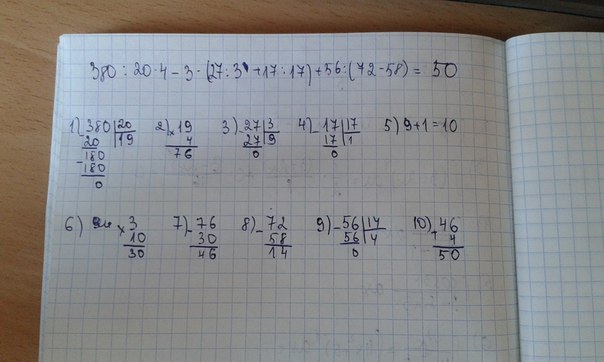 380 : 20 · 4 - 3 · (27 : 3 + 17 : 17) + 56 : (72 - 58) = 50
1) 380 | 20
20 | 19
180
- 180
0
2) 19
× 4
76
3) - 27 | 3
27 | 9
0
4) - 17 | 17
17 | 1
0
5) 9 + 1 = 10
6) × 3
10
30
7) - 76
30
46
8) - 72
58
14
9) - 56 | 14
56 | 4
0
10) + 46
4
50